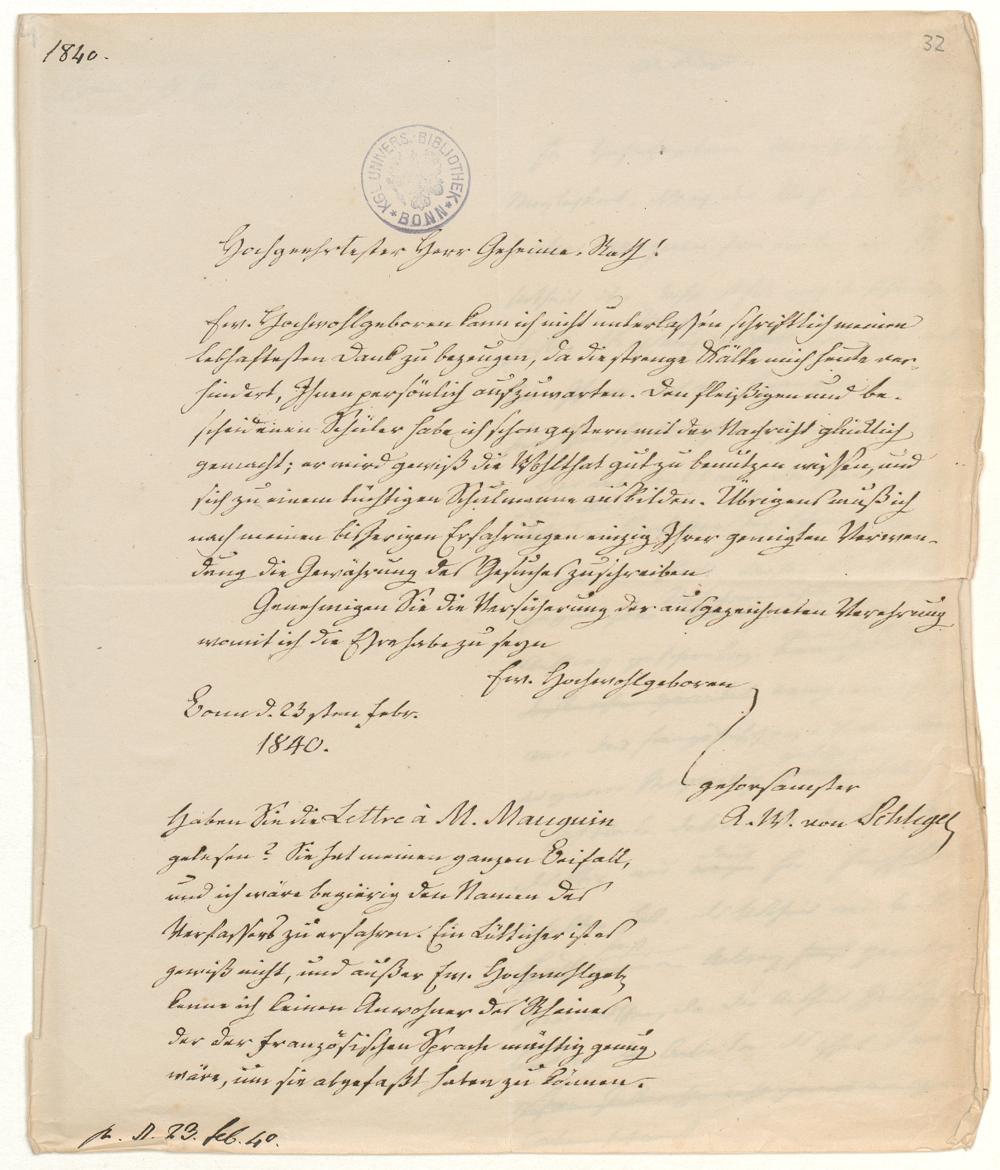 1840.
32
KGL. UNIVERS. BIBLIOTHEK
BONN
Hochgeehrtester Herr Geheime-Rath!
Ew. Hochwohlgeboren kann ich nicht unterlassen schriftlich meinen
lebhaftesten Dank zu bezeugen, da die strenge Kälte mich heute ver-
hindert, Ihnen persönlich aufzuwarten. Den fleißigen und be-
scheidenen Schüler habe ich schon gestern mit der Nachricht glücklich
gemacht; er wird gewiß die Wohlthat gut zu benutzen wissen, und
sich zu einem tüchtigen Schulmanne ausbilden. Übrigens muß ich
nach meinen bisherigen Erfahrungen einzig Ihrer geneigten Verwen-
dung die Gewährung des Gesuches zuschreiben
Genehmigen Sie die Versicherung der ausgezeichneten Verehrung
womit ich die Ehre habe zu seyn
Ew. Hochwohlgeboren
Bonn d. 23sten Febr.
1840.
gehorsamster
A. W. von Schlegel
Haben Sie die Lettre à M. Mauguin
gelesen? Sie hat meinen ganzen Beifall,
und ich wäre begierig den Namen des
Verfassers zu erfahren. Ein Lütticher ist es
gewiß nicht, und außer Ew. Hochwohlgeb
kenne ich keinen Anwohner des Rheines
der der französischen Sprache mächtig genug
wäre, um sie abgefaßt haben zu können.
23. feb. 40.